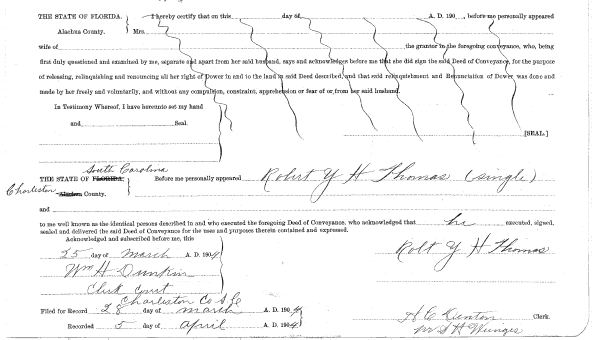 THE STATE OF FLORIDA. I hereby certify that on this day of A. D. 190 , before me personally appeared
Alachua County. Mrs.
wife of the grantor in the foregoing conveyance, who, being
first duly questioned and examined by me, separate and apart from her said husband, says and acknowledges before me that she did sign the said Deed of Conveyance, for the purpose
of releasing, relinquishing and renouncing all her right of Dower in and to the land in said Deed described, and that said relinquishment and Renunciation of Dower was done and
made by her freely and voluntarily, and without any compulsion, constraint, apprehension or fear of or from her said husband.
In Testimony Whereof, I have hereunto set my hand
and Seal.
[SEAL.]
South Carolina
THE STATE OF FLORIDA. Before me personally appeared Robert Y H Thomas (single)
Charleston Alachua County.
and
to me well known as the identical persons described in and who executed the foregoing Deed of Conveyance, who acknowledged that he executed, signed,
sealed and delivered the said Deed of Conveyance for the uses and purposes therein contained and expressed.
Acknowledged and subscribed before me, this
25 day of March A. D. 1904 Robt Y H Thomas
Wm H Dunkin
Clerk Court
Charleston Co S.C.
Filed for Record 28 day of March A. D. 1904 H C Denton Clerk.
Recorded 5 day of April A. D. 1904